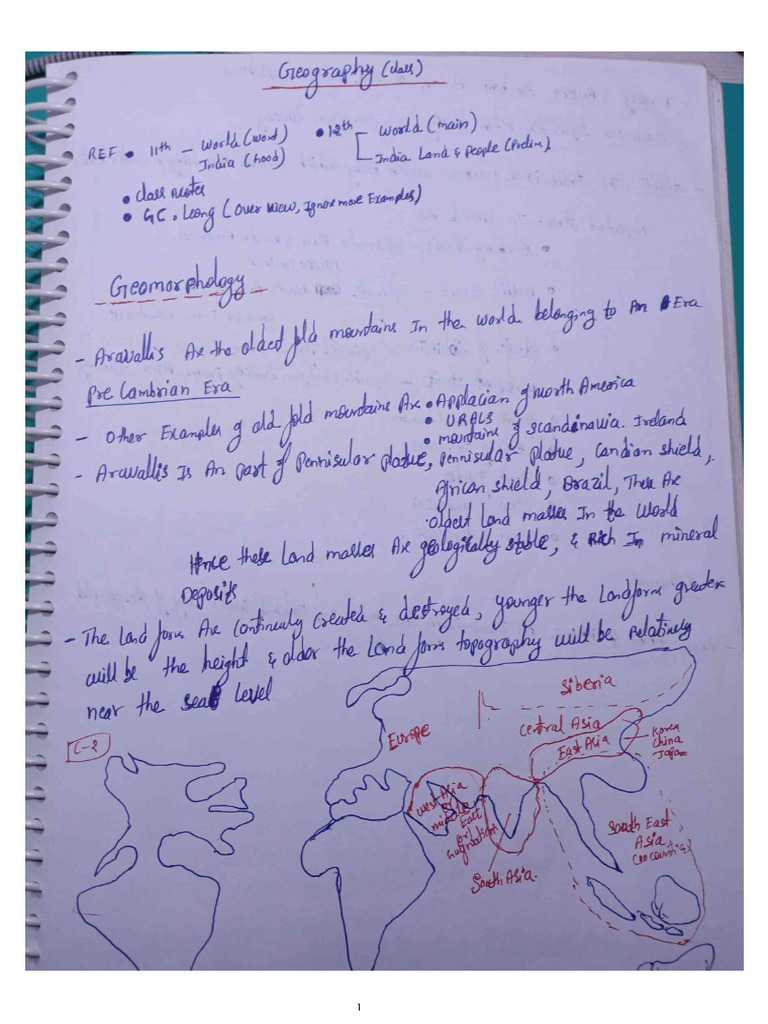 Geography (class)
REF. • 11th – World (word) • 12th – World (main)
India (hood) India Land & People (Prelim)
• Class Notes
• G.C. Leong (Over View, Ignore more Examples)
Geomorphology
- Aravallis Are the oldest fold mountains In the world belonging to An Era
Pre Cambrian Era
- Other Examples of old fold mountains Are • Applacian of North America
• URALS
• mountains of Scandinawia. Ireland
- Aravallis Is An part of Pennisular platue, Pennisular platue, Candian shield,
African shield, Brazil, These Are
oldest Land masses In the World
Hence these Land masses Are geologically stable, & Rich In mineral
Deposits
- The land form Are Continuly Created & destroyed, younger the Landform greater
will be the height & older the Land form topography will be relatively
near the sea level
C-2
Europe
Siberia
Central Asia
East Asia
Korea
China
Japan
West Asia
or
middle
East
or
South East
Asia
South Asia.
1